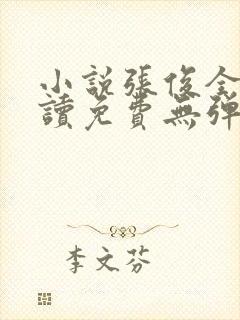 小説張俊全
讀免費無彈
李文芬